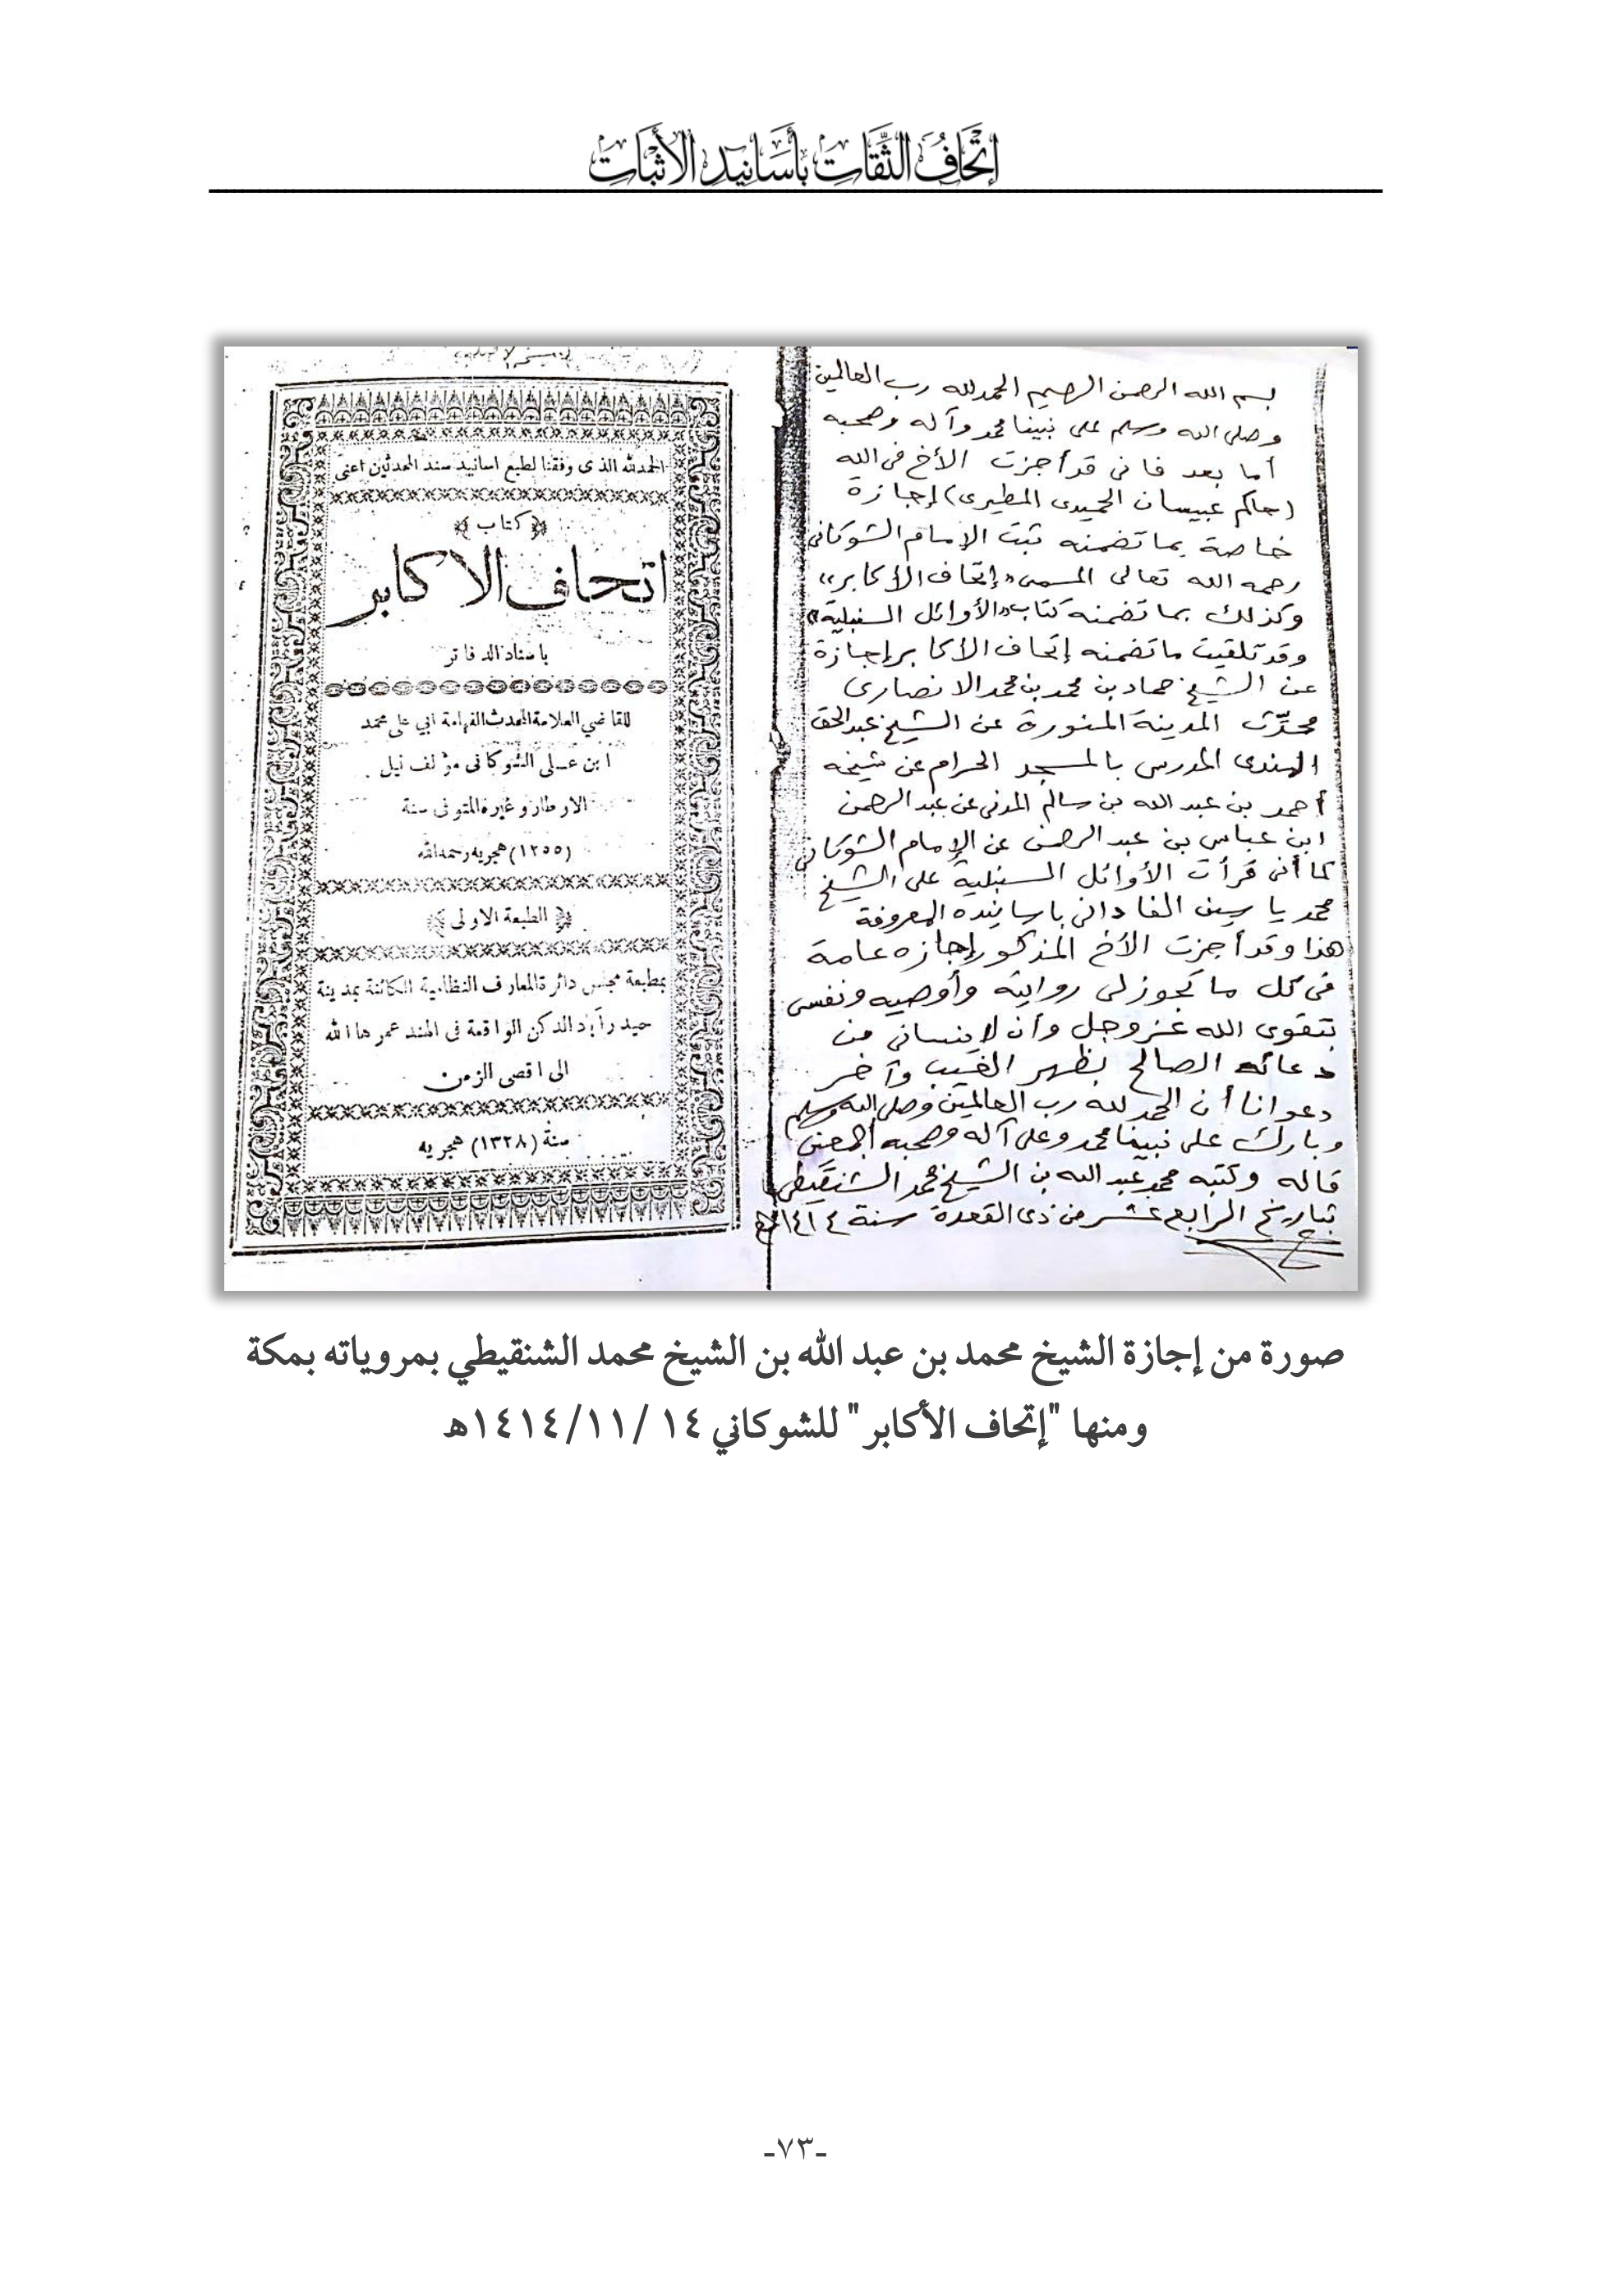 إتحاف الثقات بأسانيد الأثبات
بسم الله الرحمن الرحيم الحمد لله رب العالمين
وصلى الله وسلم على نبينا محمد وآله وصحبه
أما بعد فانى قد أجزت الأخ فى الله
(حاكم عبيسان الحميدى المطيرى) إجازة
خاصة بما تضمنه ثبت الإمام الشوكانى
رحمه الله تعالى المسمى «إتحاف الأكابر»
وكذلك بما تضمنه كتاب «الأوائل السنبلية»
وقد تلقيت ما تضمنه إتحاف الأكابر إجازة
عن الشيخ حماد بن محمد بن محمد الانصارى
محدّث المدينة المنورة عن الشيخ عبد الحق
الهندى المدرس بالمسجد الحرام عن شيخه
أحمد بن عبد الله بن سالم المدنى عن عبد الرحمن
ابن عباس بن عبد الرحمن عن الإمام الشوكانى
كما أنى قرأت الأوائل السنبلية على الشيخ
محمد ياسين الفادانى باسانيده المعروفة
هذا وقد أجزت الأخ المذكور إجازه عامة
فى كل ما تجوز لى روايته وأوصيه ونفسى
بتقوى الله عز وجل وأن لا ينسانى من
دعائه الصالح بظهر الغيب وآخر
دعوانا أن الحمد لله رب العالمين وصلى الله وسلم
وبارك على نبينا محمد وعلى آله وصحبه أجمعين
قاله وكتبه محمد عبد الله بن الشيخ محمد الشنقيطى
بتاريخ الرابع عشر من ذى القعدة سنة ١٤١٤هـ
الحمدلله الذى وفقنا لطبع اسانيد سند المحدثين اعنى
﴿ كتاب ﴾
اتحاف الاكابر
باسناد الدفاتر
للقاضي العلامة المحدث الفهامة ابي على محمد
ابن عــلى الشوكانى مؤلف نيل
الاوطار وغيره المتوفى سنة
(١٢٥٥) هجريه رحمه الله
﴿ الطبعة الاولى ﴾
بمطبعة مجلس دائرة المعارف النظامية الكائنة بمدينة
حيدرآباد الدكن الواقعة فى الهند عمرها الله
الى اقصى الزمن
سنة (١٣٢٨) هجريه
صورة من إجازة الشيخ محمد بن عبد الله بن الشيخ محمد الشنقيطي بمروياته بمكة
ومنها "إتحاف الأكابر" للشوكاني ١٤ /١١/ ١٤١٤هـ
-٧٣-